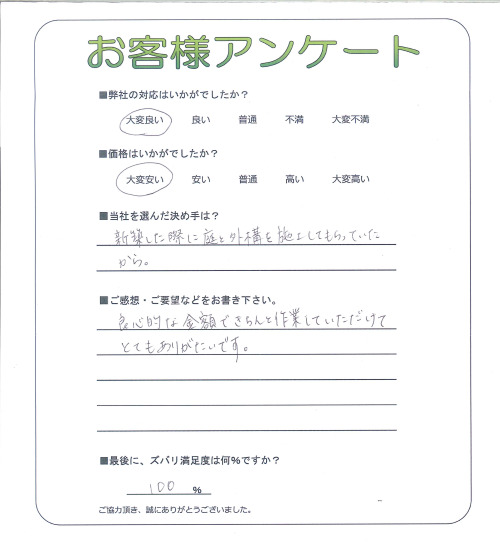 お客様アンケート
■弊社の対応はいかがでしたか？
大変良い 良い 普通 不満 大変不満
■価格はいかがでしたか？
大変安い 安い 普通 高い 大変高い
■当社を選んだ決め手は？
新築した際に庭と外構を施工してもらっていた
から。
■ご感想・ご要望などをお書き下さい。
良心的な金額できちんと作業していただけて
とてもありがたいです。
■最後に、ズバリ満足度は何％ですか？
100 %
ご協力頂き、誠にありがとうございました。